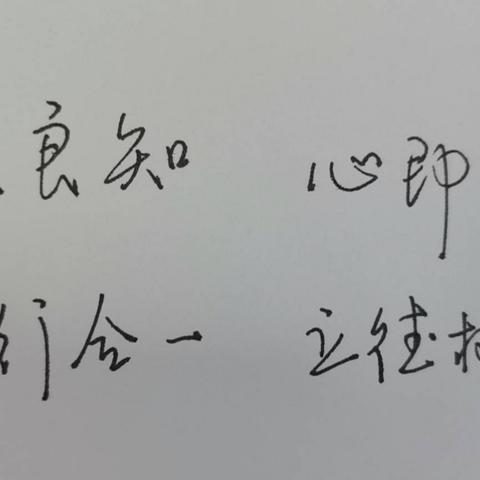 良知 心即
行合一 立德